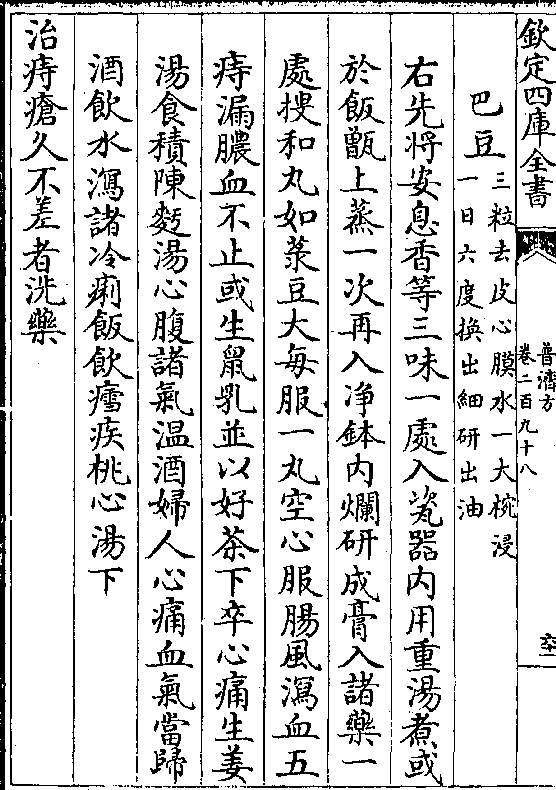 欽定四庫全書
普濟方
卷二百九十八
巴豆三粒去皮心膜水一大椀浸
一日六度換出細研出油
右先將安息香等三味一處入甆器内用重湯煮或
於飯甑上蒸一次再入凈鉢内爛研成膏入諸藥一
處搜和丸如菉豆大每服一丸空心服腸風瀉血五
痔漏膿血不止或生鼠乳並以好茶下卒心痛生姜
湯食積陳麪湯心腹諸氣温酒婦人心痛血氣當歸
酒飲水瀉諸冷痢飯飲瘧疾桃心湯下
治痔瘡久不差者洗藥